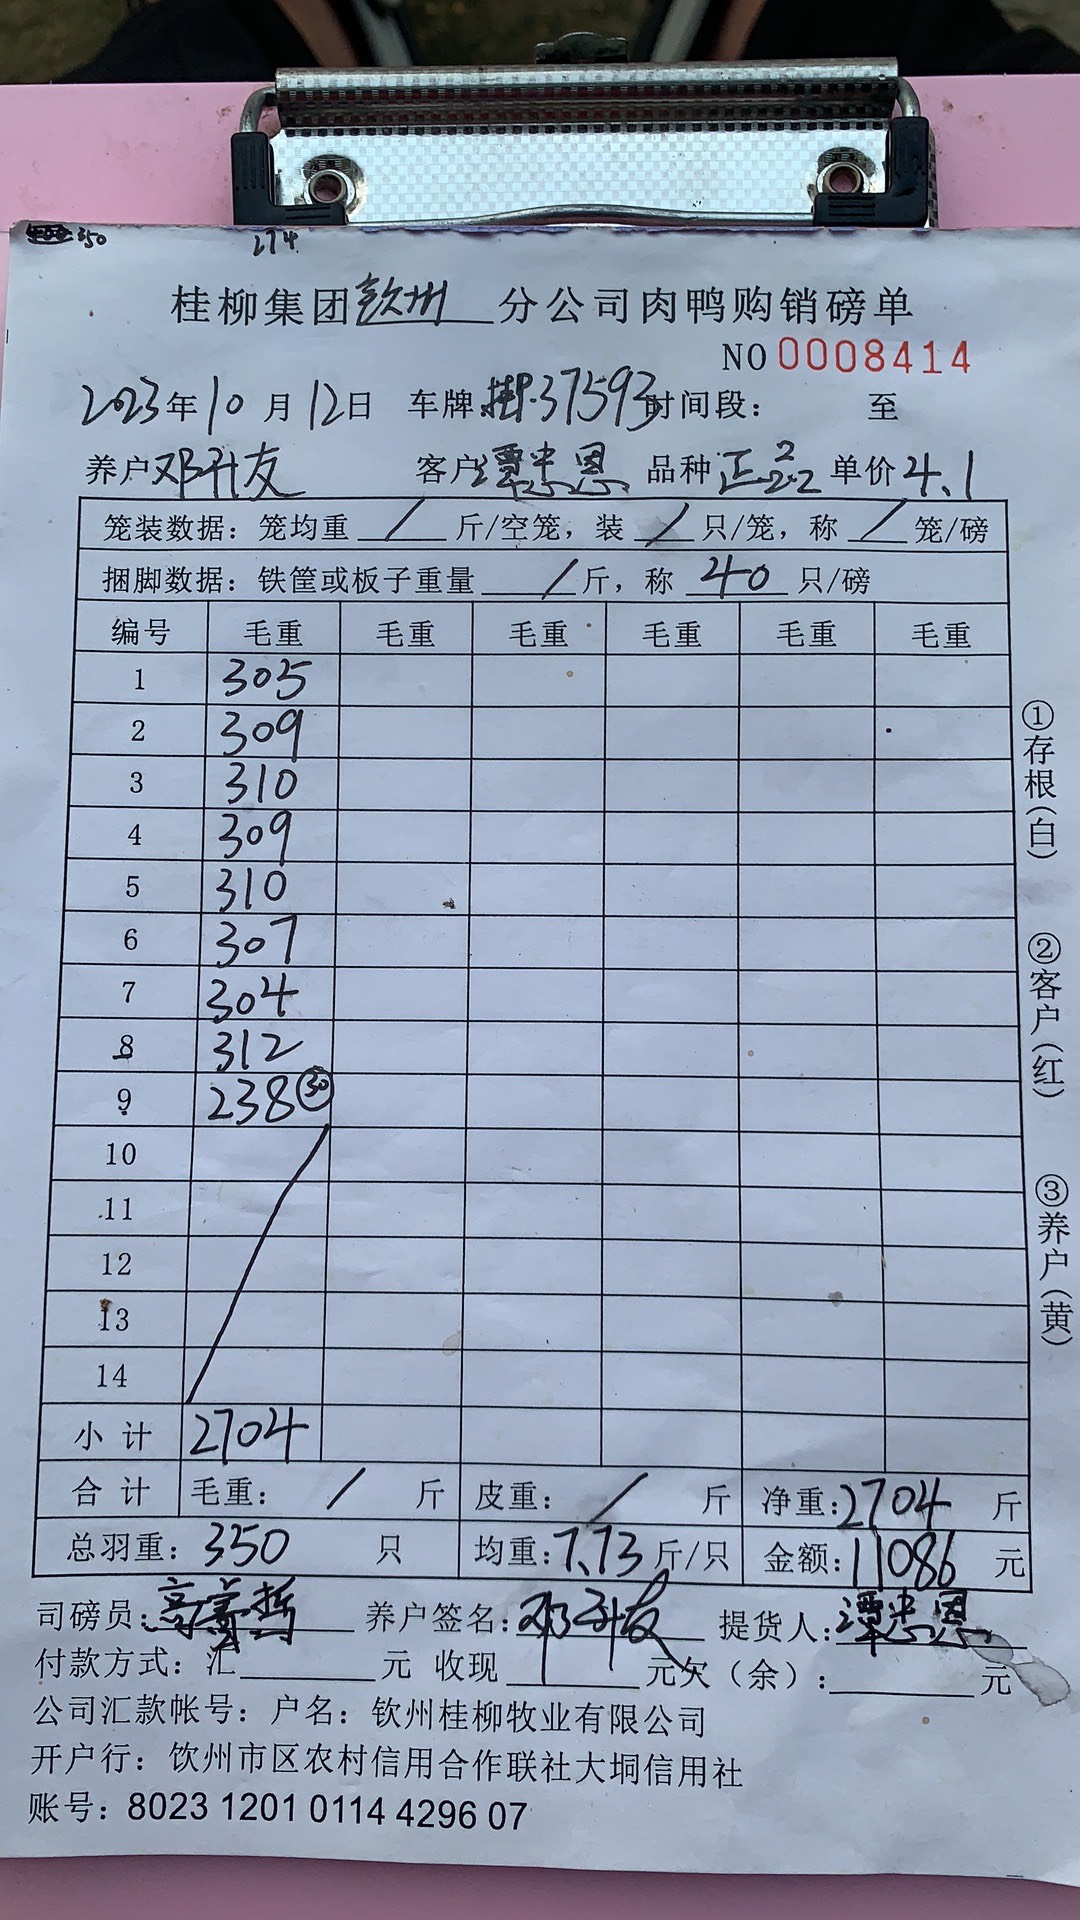 350
274
桂柳集团钦州分公司肉鸭购销磅单
NO 0008414
2023年10月12日 车牌:挂.37593时间段: 至
养户邓升友 客户:谭忠恩 品种 正品2 单价4.1
笼装数据: 笼均重 / 斤/空笼, 装 / 只/笼, 称 / 笼/磅
捆脚数据: 铁筐或板子重量 / 斤, 称 40 只/磅
编号 毛重 毛重 毛重 毛重 毛重 毛重
1 305
2 309
3 310
4 309
5 310
6 307
7 304
8 312
9 238 ㉚
10
11
12
13
14
小计 2704
合计 毛重: / 斤 皮重: / 斤 净重:2704 斤
总羽重: 350 只 均重:7.73斤/只 金额:11086 元
司磅员: 养户签名:邓升友 提货人:谭忠恩
付款方式: 汇 元 收现 元欠(余): 元
公司汇款帐号: 户名: 钦州桂柳牧业有限公司
开户行: 饮州市区农村信用合作联社大垌信用社
账号: 8023 1201 0114 4296 07
①存根(白)
②客户(红)
③养户(黄)